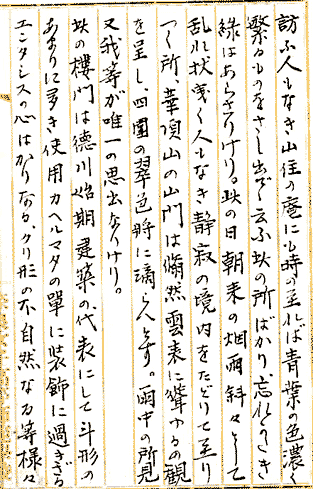 訪ふ人もなき山住の庵にも時の至れば青葉の色濃く
繋るものをさし出ぞ云ふ此の所ばかり、忘れつき
緑はあらざりけり。此の日朝来の烟雨斜々として
乱れ伏し曳く人もなき静寂の境内をたどりて至り
つく所、華頂山の山門は翛然雲表に聳ゆるの観
を呈し、四囲の翠色将に滴らんとす。雨中の所見
又我等が唯一の思出なりけり。
此の楼門は徳川始期建築の代表にして斗形の
あまりに多き使用カヘルマタの単に装飾に過ぎざる
エンタシスの心ばかりなる、クリ形の不自然なる等様々